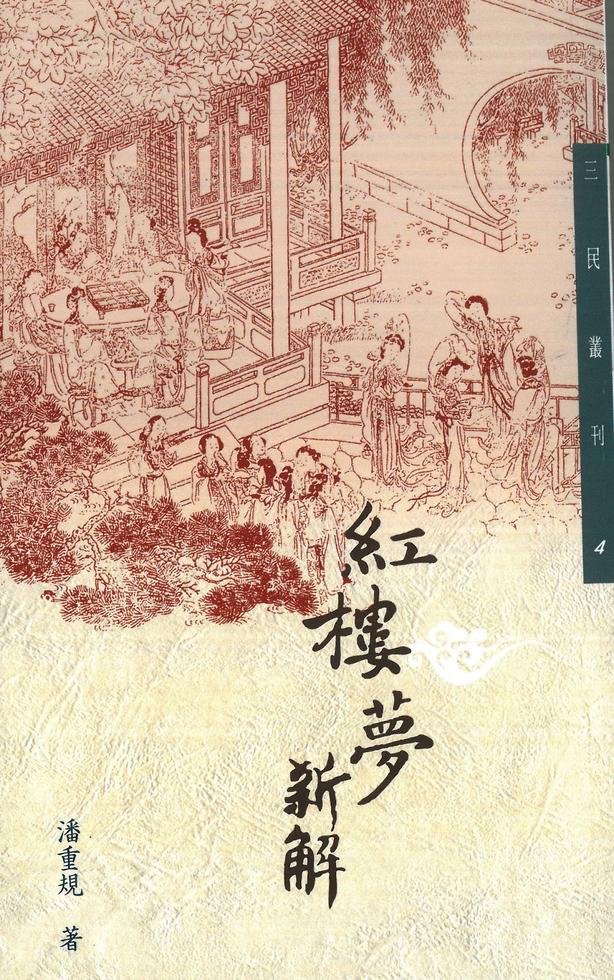 三民叢刊 4
紅樓夢
新解
潘重規 著